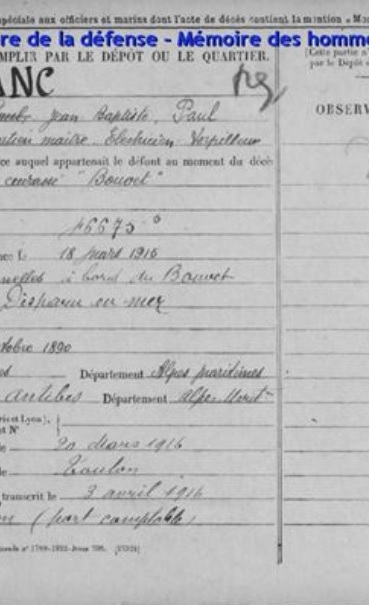 spéciale aux officiers et marins dont l'acte de décès contient la mention « Mo
re de la défense - Mémoire des homme
EMPLIR PAR LE DÉPÔT OU LE QUARTIER.
[Cette partie n'
par le Dépôt o
ANC
OBSERV
Jean Baptiste, Paul
maître Electricien Torpilleur
ce auquel appartenait le défunt au moment du décès
cuirassé "Bouvet"
46675
18 mars 1915
à bord du Bouvet
Disparu en mer
tobre 1890
es Département Alpes maritimes
antibes Département alpes Marit
ris et Lyon),
t N°
le 20 Mars 1916
de Toulon
transcrit le 3 avril 1916
(port comptable)